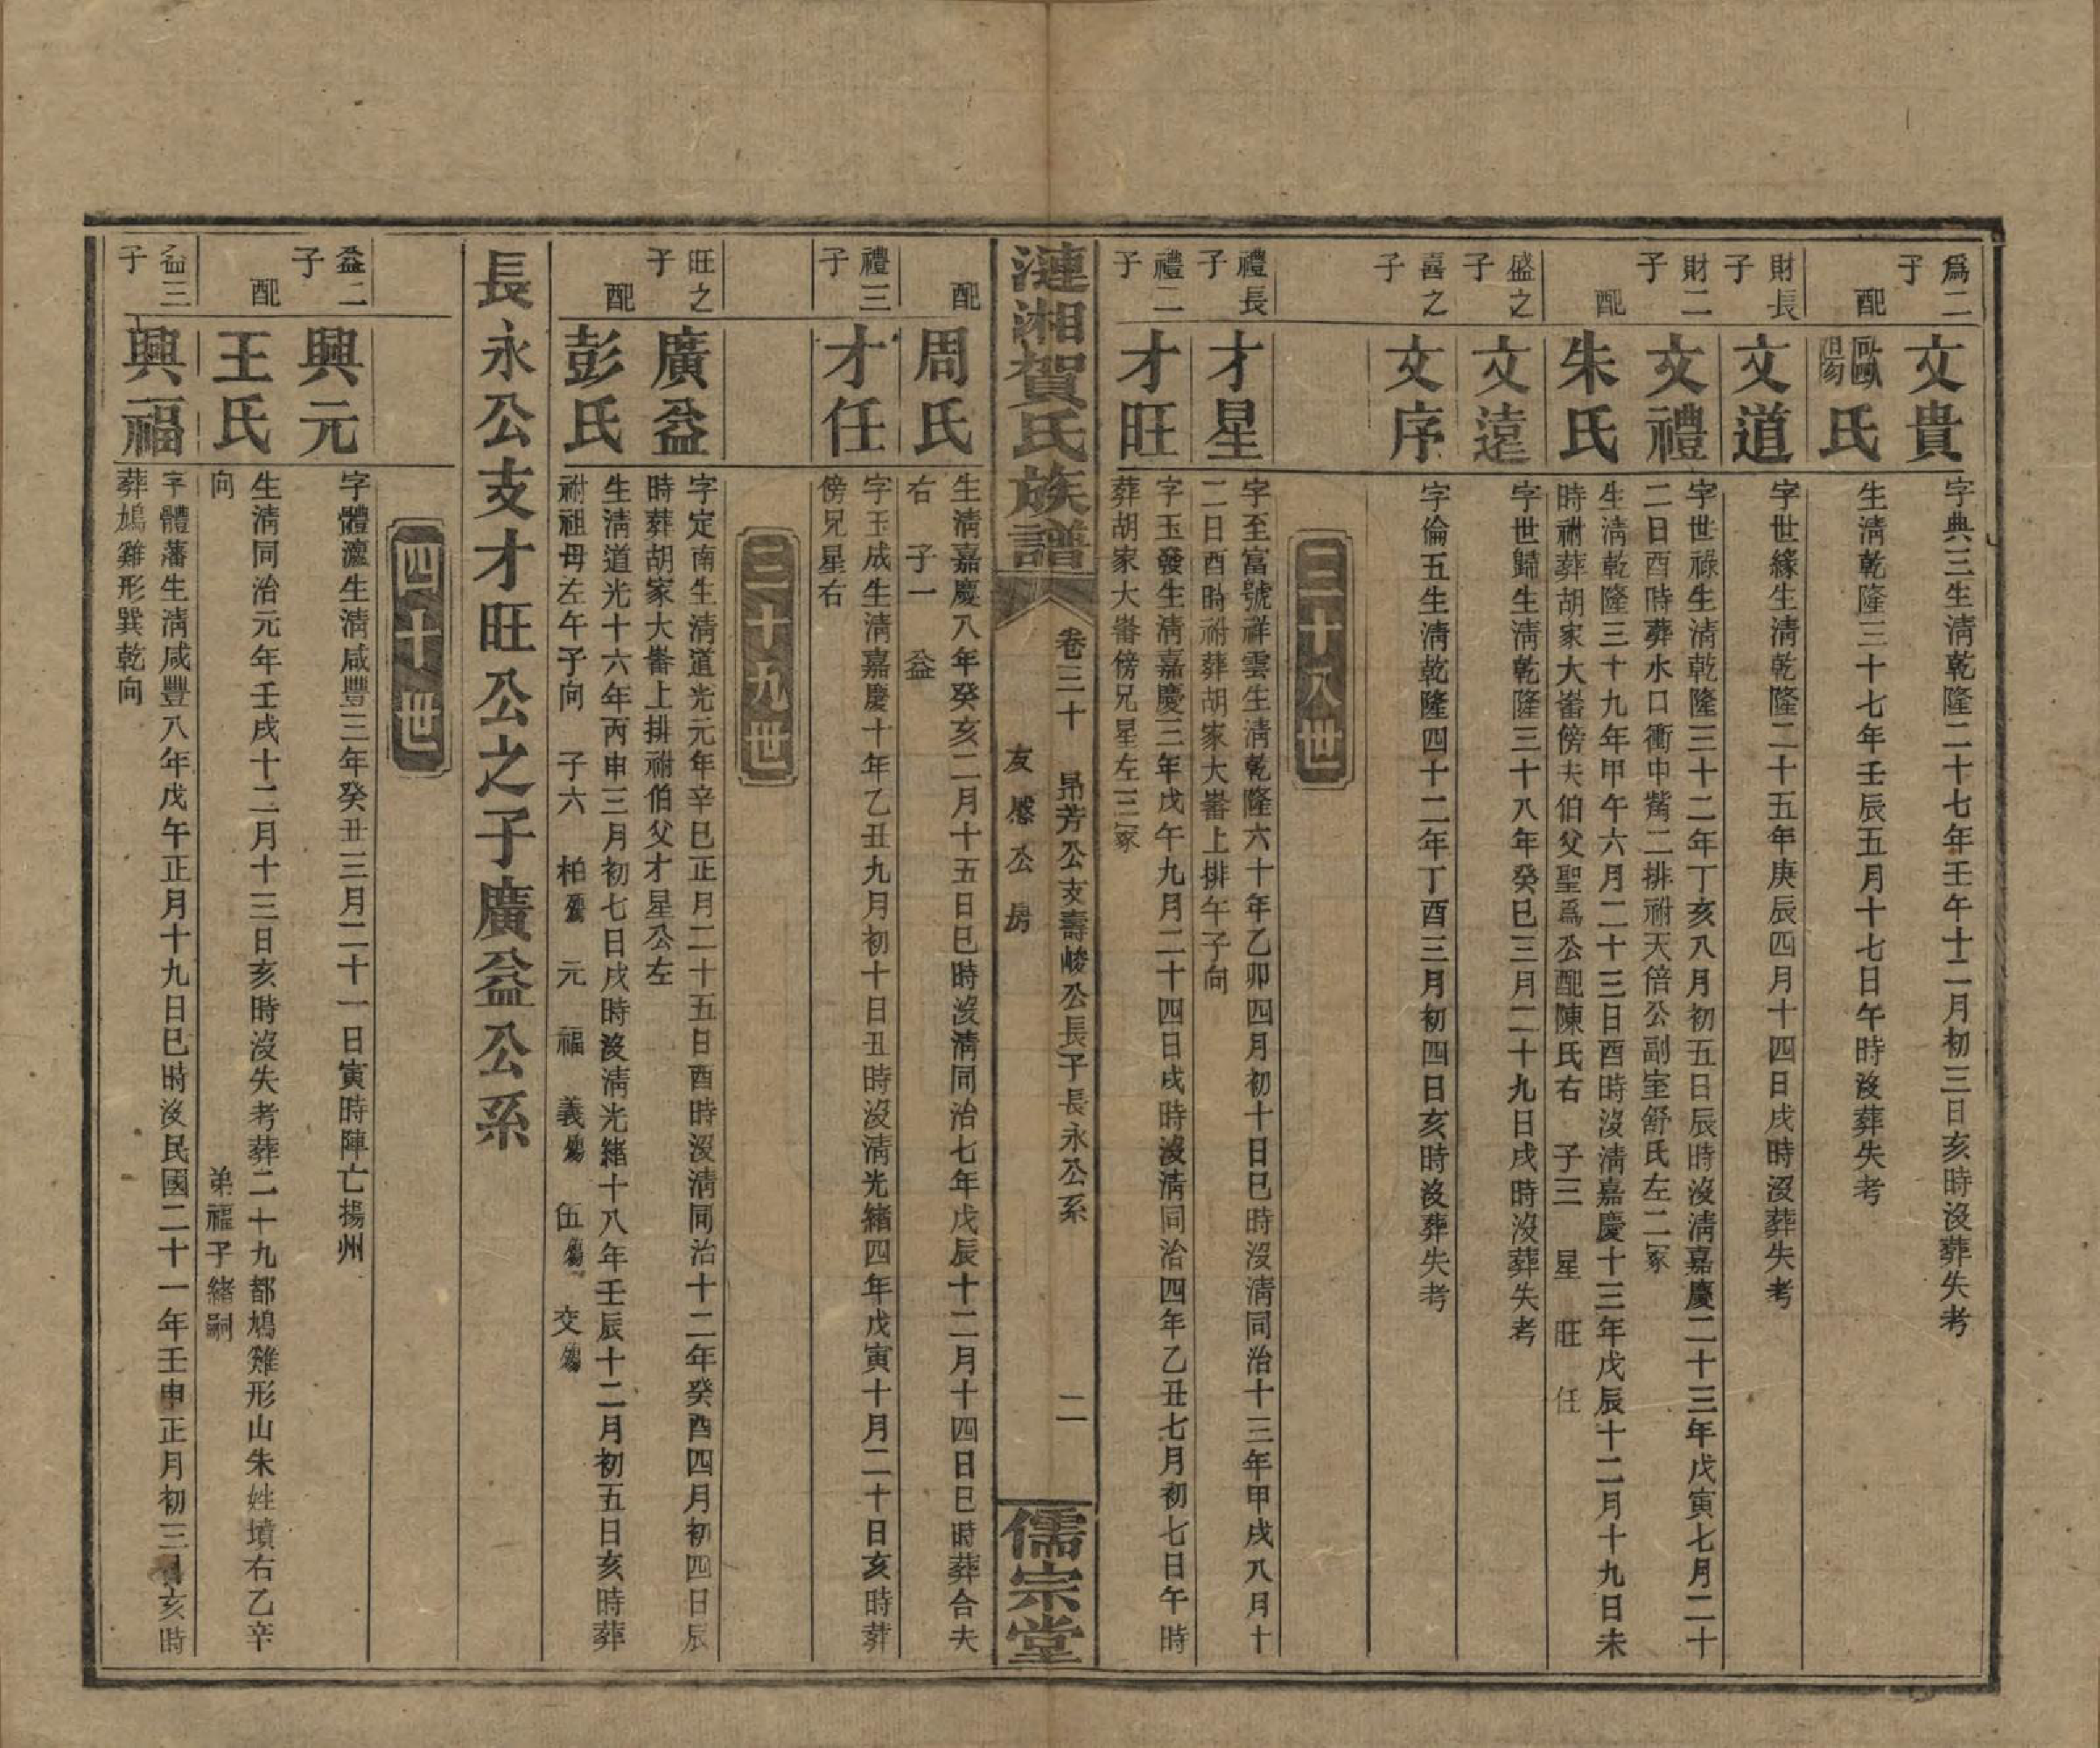 爲二子
文貴
字典三生淸乾隆二十七年壬午十二月初三日亥時沒葬失考
配
歐陽氏
生淸乾隆三十七年壬辰五月十七日午時沒葬失考
財長子
文道
字世緣生淸乾隆二十五年庚辰四月十四日戌時沒葬失考
財二子
文禮
字世祿生淸乾隆三十二年丁亥八月初五日辰時沒淸嘉慶二十三年戊寅七月二十
二日酉時葬水口衝中嘴二排祔天倍公副室舒氏左二冢
配
朱氏
生淸乾隆三十九年甲午六月二十三日酉時沒淸嘉慶十三年戊辰十二月十九日未
時祔葬胡家大崙傍夫伯父聖爲公配陳氏右 子三 星 旺 任
盛之子
文遠
字世歸生淸乾隆三十八年癸巳三月二十九日戌時沒葬失考
喜之子
文序
字倫五生淸乾隆四十二年丁酉三月初四日亥時沒葬失考
三十八世
禮長子
才星
字至富號祥雲生淸乾隆六十年乙卯四月初十日巳時沒淸同治十三年甲戌八月十
二日酉時祔葬胡家大崙上排午子向
禮二子
才旺
字玉發生淸嘉慶三年戊午九月二十四日戌時沒淸同治四年乙丑七月初七日午時
葬胡家大崙傍兄星左三冢
漣湘賀氏族譜
卷三十 昂芳公支壽峻公長子長永公系
友感公房
二
儒宗堂
配
周氏
生淸嘉慶八年癸亥二月十五日巳時沒淸同治七年戊辰十二月十四日巳時葬合夫
右 子一 益
禮三子
才任
字玉成生淸嘉慶十年乙丑九月初十日丑時沒淸光緒四年戊寅十月二十日亥時葬
傍兄星右
三十九世
旺之子
廣益
字定南生淸道光元年辛巳正月二十五日酉時沒淸同治十二年癸酉四月初四日辰
時葬胡家大崙上排祔伯父才星公左
配
彭氏
生淸道光十六年丙申三月初七日戌時沒淸光緒十八年壬辰十二月初五日亥時葬
祔祖母左午子向 子六 柏殤 元 福 義殤 伍殤 交殤
長永公支才旺公之子廣益公系
四十世
益二子
興元
字體瀍生淸咸豐三年癸丑三月二十一日寅時陣亡揚州
配
王氏
生淸同治元年壬戌十二月十三日亥時沒失考葬二十九都鳩雞形山朱姓墳右乙辛
向 弟福子緒嗣
益三子
興福
字體藩生淸咸豐八年戊午正月十九日巳時沒民國二十一年壬申正月初三日亥時
葬鳩雞形巽乾向